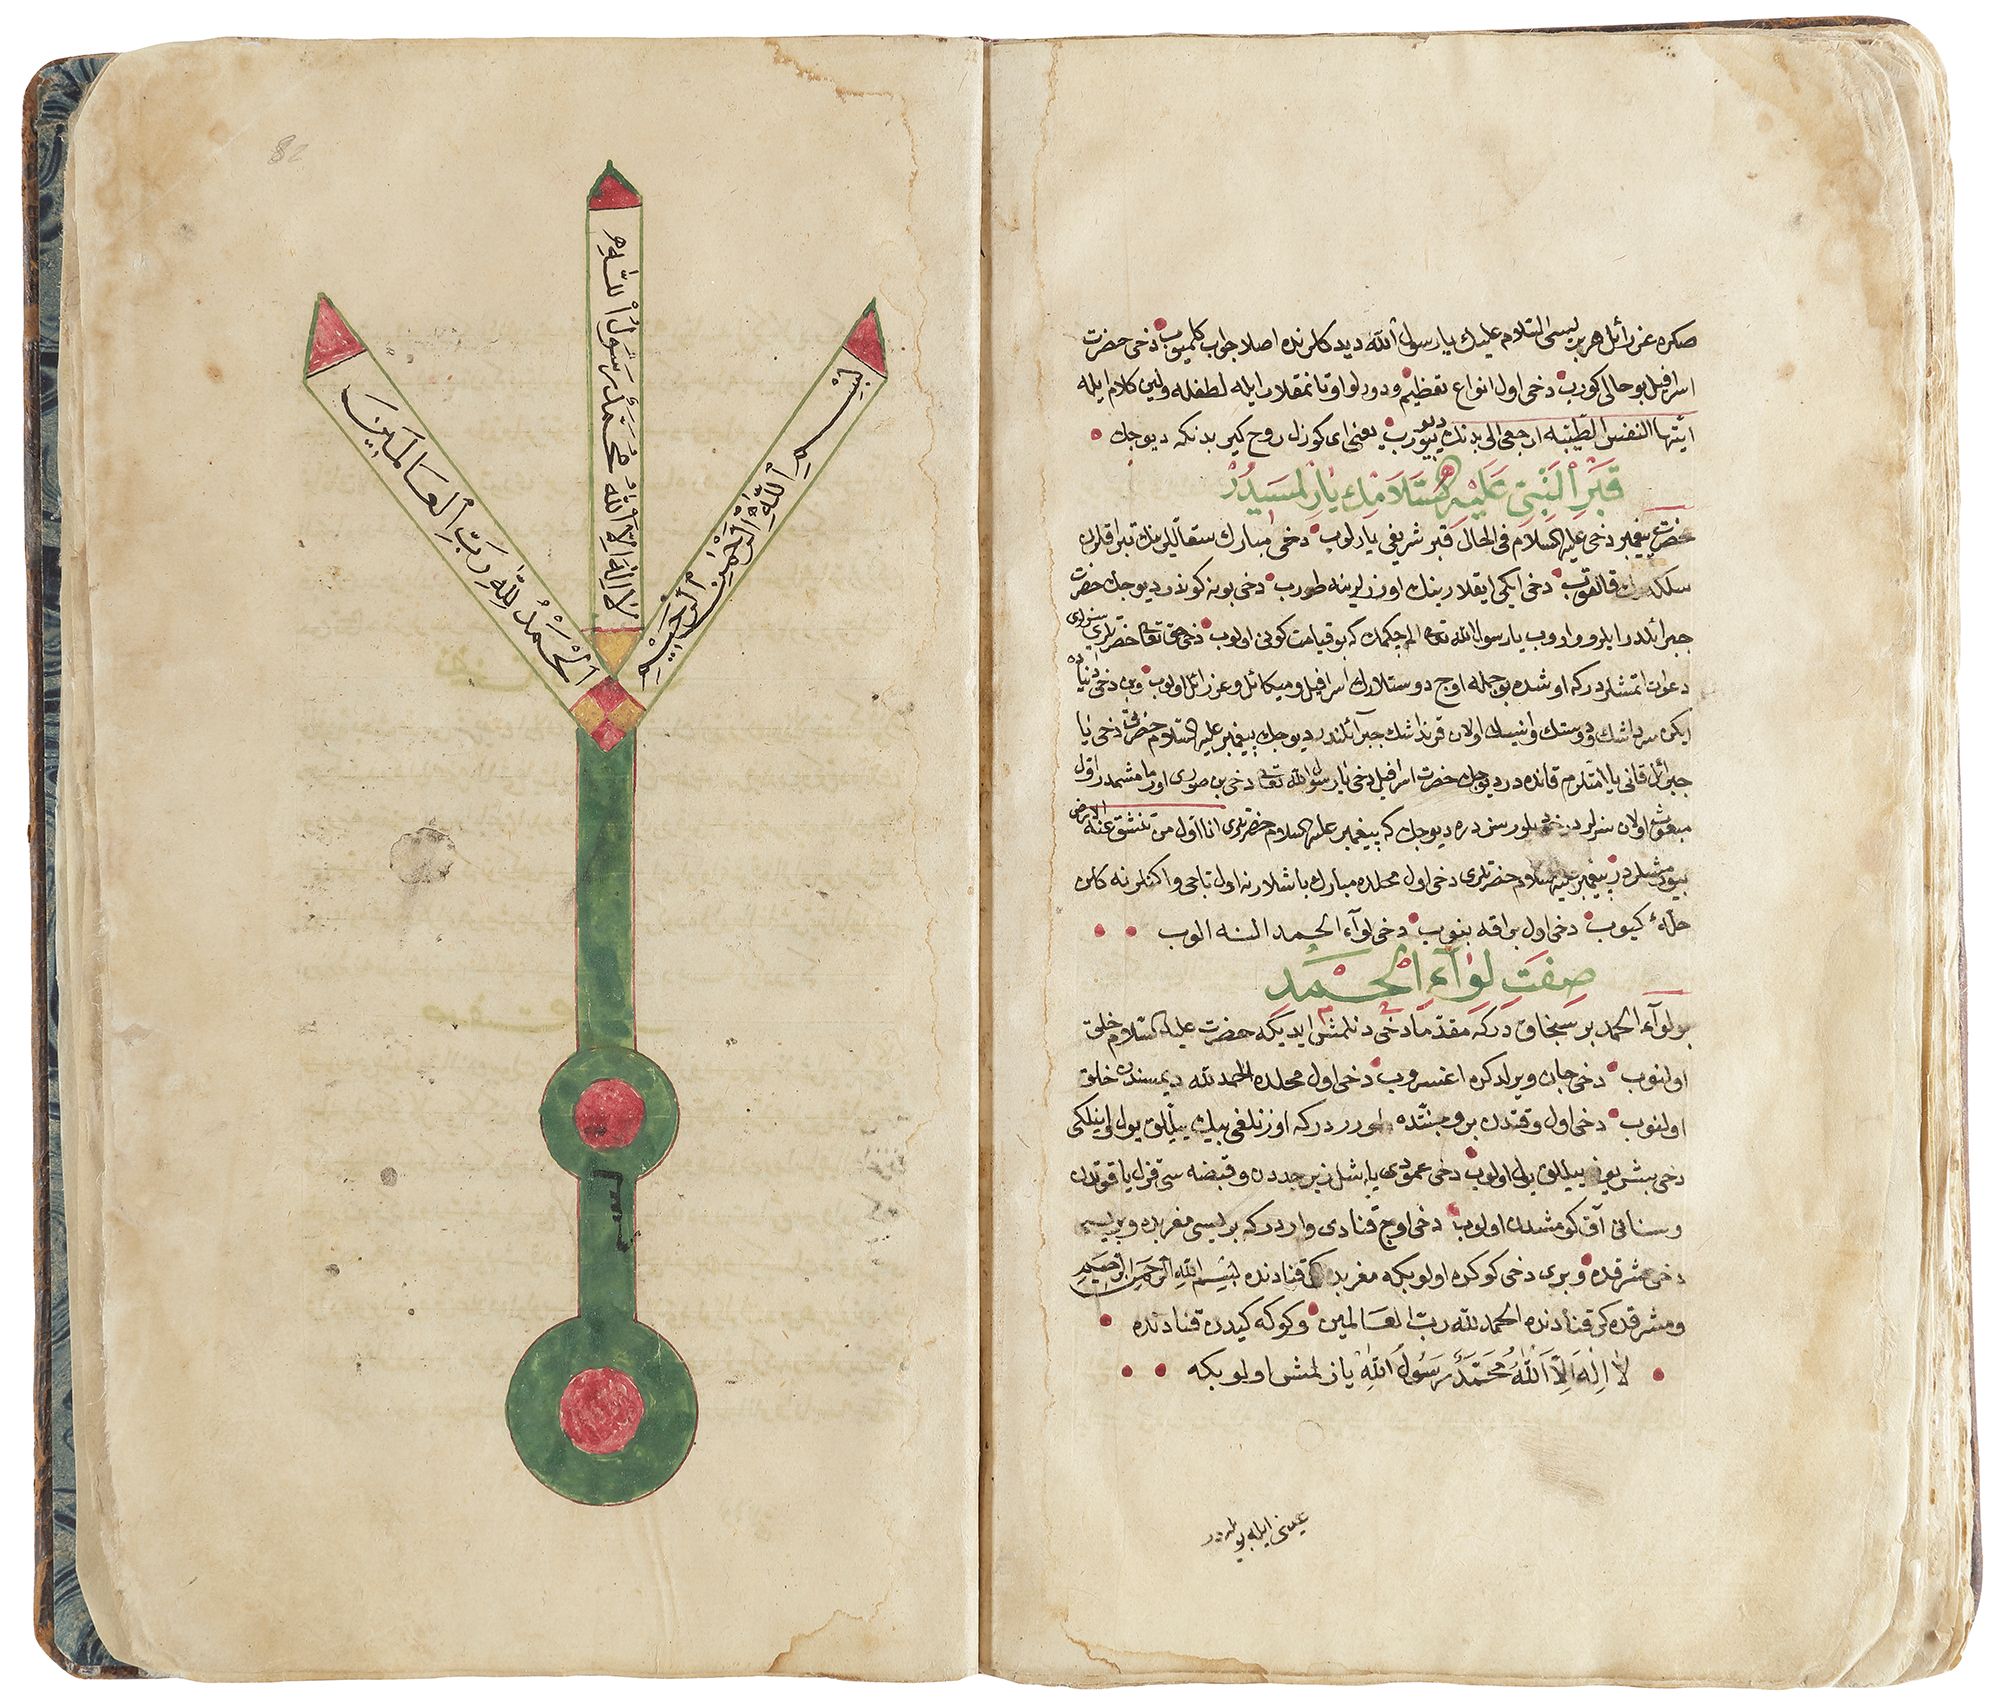 صكره عزرائل هر بريسى السّلام عليك يا رسول الله ديدكلرنده اصلا جواب كلميوب دخى حضرت
اسرافيل بو حالى كورب دخى اول انواع تعظيم ايله لطفله ولين كلام ايله
ايّتها النفس الطيّبه ارجعى الى بدنك ديو بيورب يعنى اى كوزل روح كير بدنكه ديوجك
قبر النّبى عليه السّلامك يارلمسيدر
حضرت پيغمبر دخى عليه السلام فى الحال قبر شريفى يارلوب دخى مبارك سقاللرينك تبراقلرن
سلكه قالقوب دخى ايكى ايقلارينك اوزرلرينه طورب دخى بونه كوندر ديوجك حضرت
جبرائلدر ايلرو واروب يا رسول الله بو قيامت كونى اولوب دخى حق تعالى حضرتلرى سزلرى
دعوت اتمشلردركه اوشده بو جمله اوج دوستلارك اسرافيل وميكائل وعزرائل اولوب وبن دخى دنياده
ايكن سرداشك ودوستك وانيسك اولان قرنداشك جبرآئلندر ديوجك پيغمبر عليه السلام حضرتى دخى يا
جبرائل قانى يا امّتلرم قانده در ديوجك حضرت اسرافيل دخى يا رسول الله دخى بن صورى اورمامشمدر اوّل
مبعوث اولان سزلر ديوجك كه پيغمبر عليه السلام حضرتلرى انا اوّل من تنشق عنه الارض
بيورمشلردر پيغمبر عليه السلام حضرتلرى دخى اول محلده مبارك باشلارنه اول تاجى واكنلرنه كلن
حلّهء كيوب دخى اول براقه بنوب دخى لوآء الحمد النه الوب
صفت لوآء الحمد
بو لوآء الحمد بر سنجاق دركه مقدّما دخى دنلمش ايديكه حضرت عليه السّلام خلق
اولنوب دخى جان ويرلدكده اغسروب دخى اول محلده الحمد لله ديمسندن خلق
اولنوب دخى اول وقتدن برو جنّتده طورر دركه اوزنلغى بيك ييللق يول واينلكى
دخى بشر يوز ييللق يول اولوب دخى عمودى ياشل زبرجددن وقبضه سى قزل ياقوتدن
وسنانى آق كومشدن اولوب دخى اوج قنادى واردركه بريسى مغربده وبريسى
دخى مشرقده وبرى دخى كوكده اولوبكه مغربدكى قنادنده بسم الله الرّحمن الرّحيم
ومشرقده كى قنادنده الحمد لله ربّ العالمين وكوكه كيدن قنادنده
لا اله الّا الله محمّد رسول الله يازلمش اولوبكه
عينى ايله بودر
82
لا اله الّا الله محمّد رسول الله
بسم الله الرّحمن الرّحيم
الحمد لله ربّ العالمين